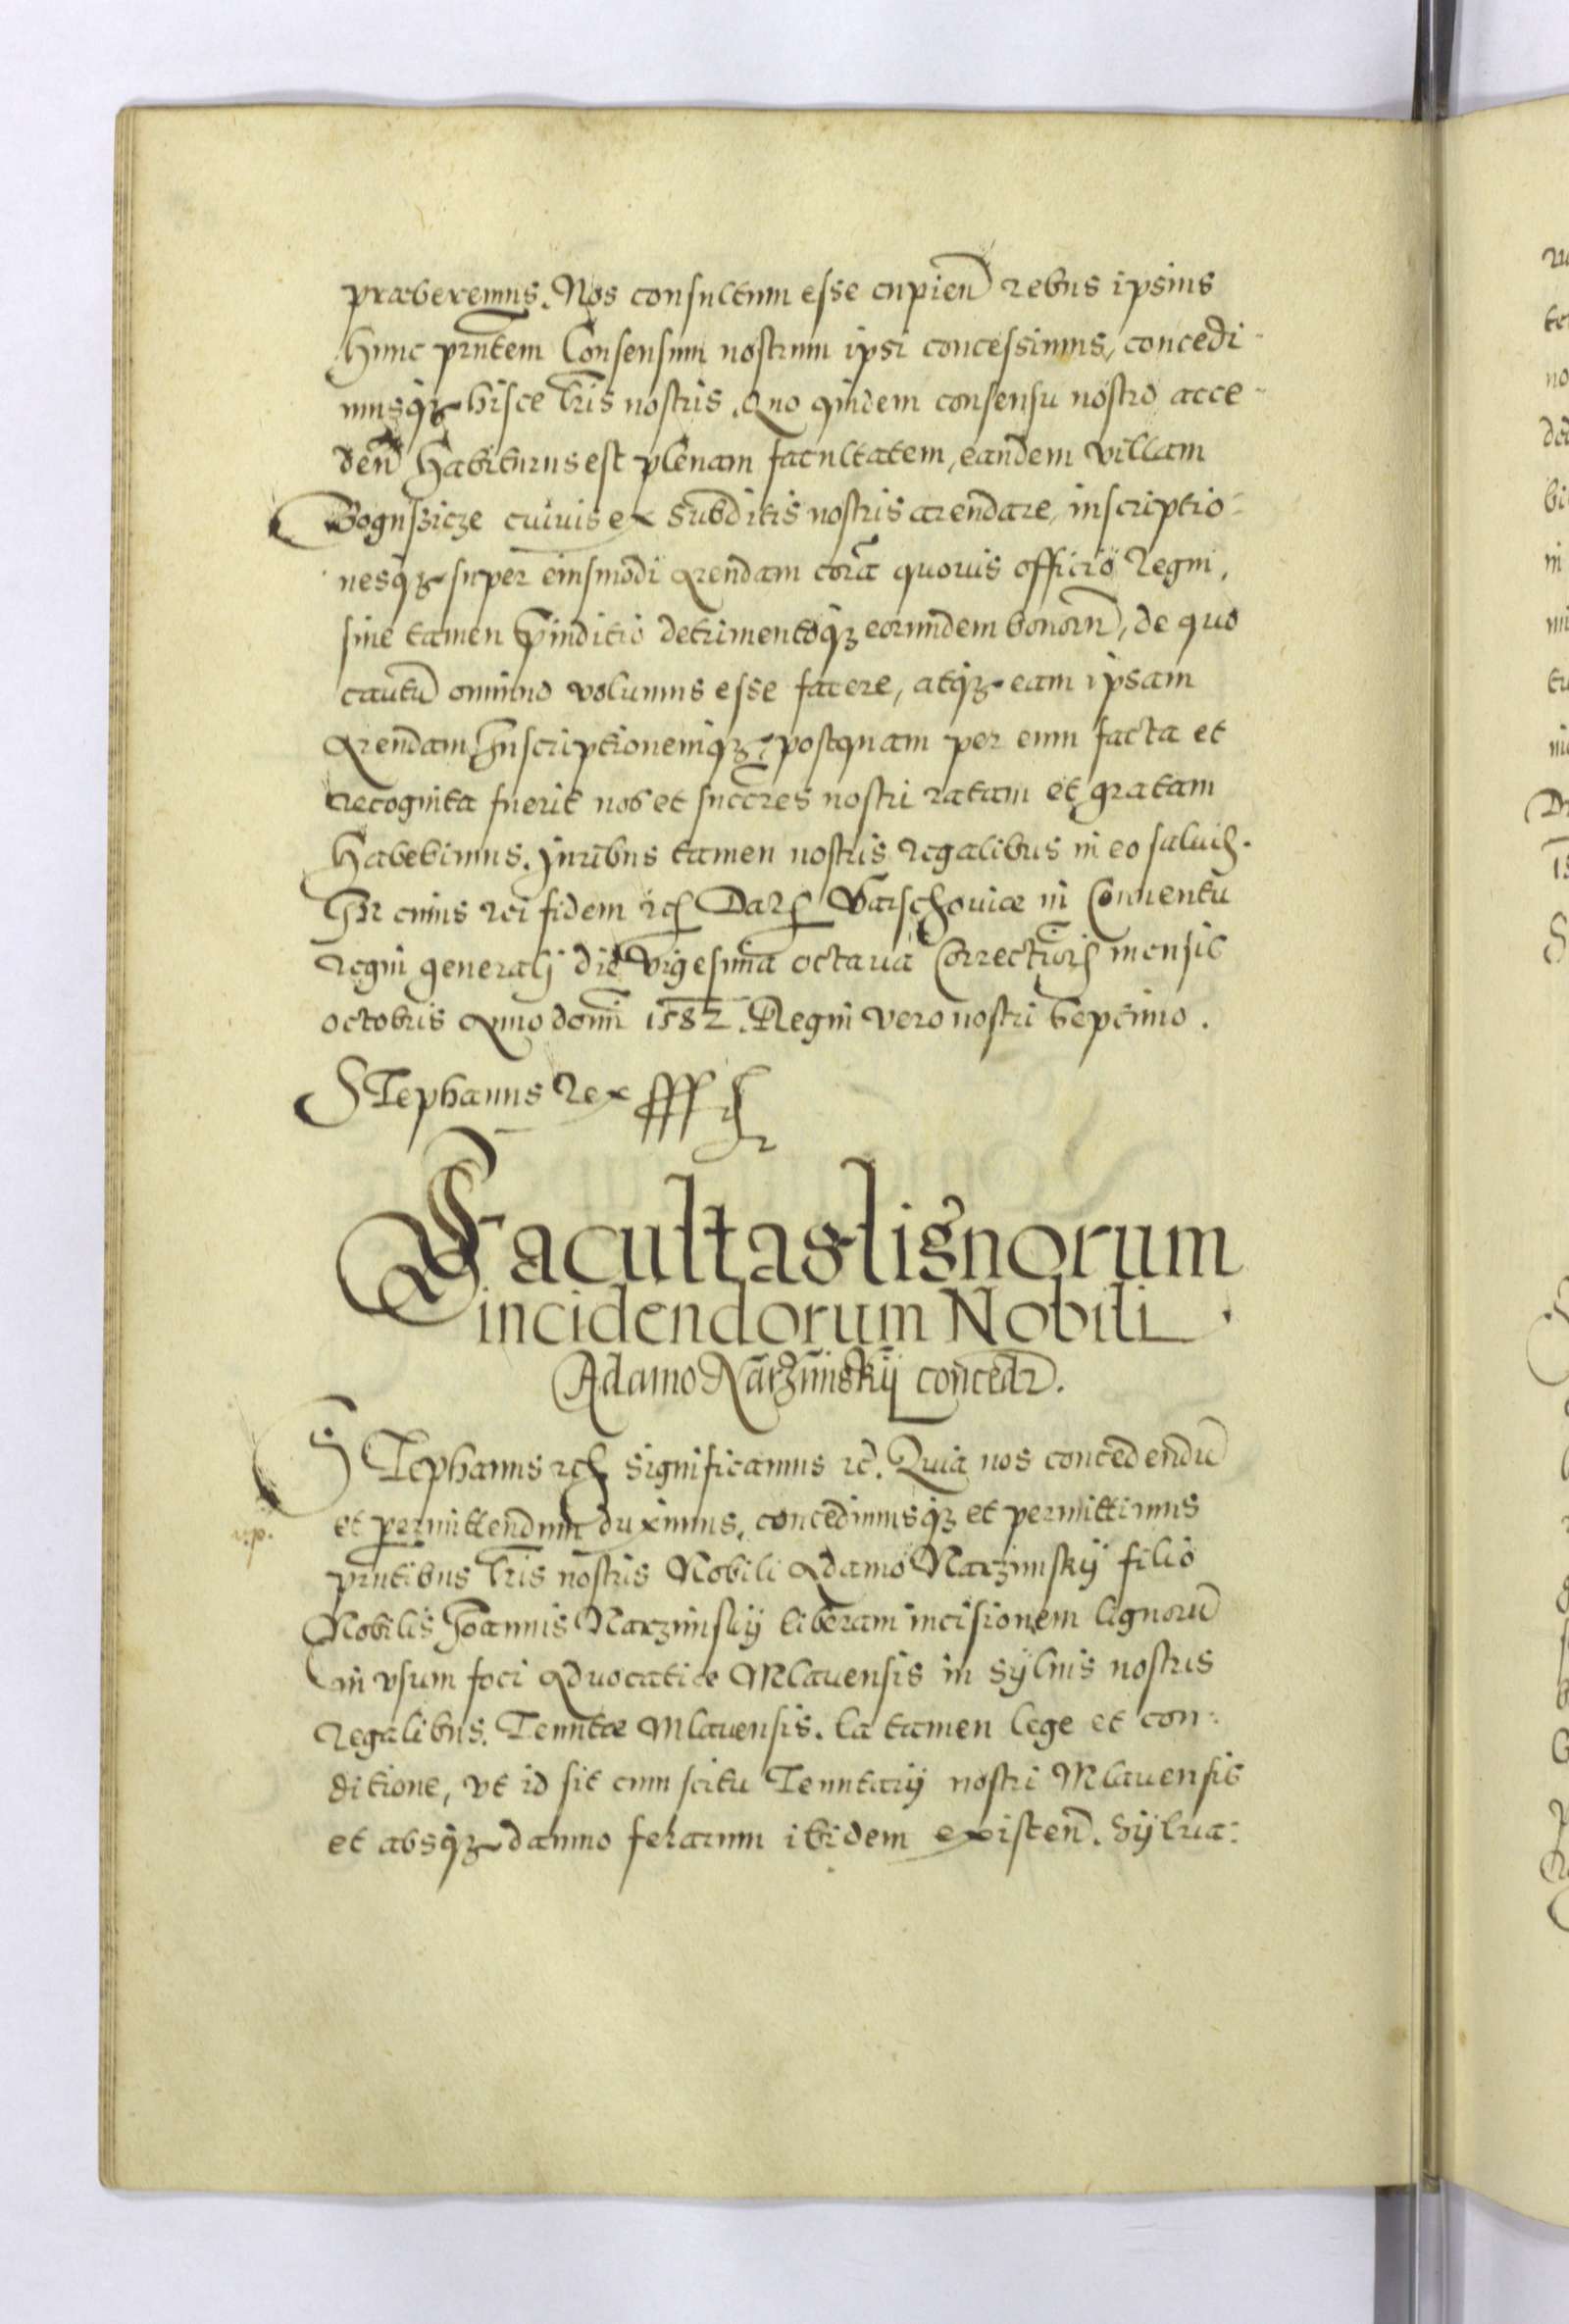 præberemus. Nos consultum esse cupien̄ rebus ipsius
Hunc prn̄tem Consensum nostrum ipsi concessimus, concedi-
musq́ʒ hisce l̄ris nostris. Quo quidem consensu nostro acce-
den̄ habiturus est plenam facultatem, eandem villam
Bogussicze cuiuis ex subditis nostris arendare, inscriptio-
nesq́ʒ super eiusmodi Arendam corā quouis officio Regni,
sine tamen p̄iuditio detrimentoq́ʒ eorundem bonorū, de quo
cautū omnino volumus esse facere, atq́ʒ eam ipsam
Arendam Inscriptionemq́ʒ, postquam per eum facta et
recognita fuerit nos et succr̄es nostri ratam et gratam
Habebimus. Juribus tamen nostris regalibus in eo saluis.
In cuius rei fidem etc. Dat. Varschouiæ in Conuentu
regni generali die vigesima octaua Correctionis mensis
octobris Anno domī 1582. Regni vero nostri Septimo.
Stephanus Rex
Facultas lignorum
incidendorum Nobili
Adamo Narzimskÿ conceditr.
Stephanus etc. significamus etc. Quia nos concedendū
et permittendum duximus, concedimusq́ʒ et permittimus
v.p.
prn̄tibus l̄ris nostris Nobili Adamo Narzimskÿ filio
Nobilis Joannis Narzimskÿ liberam incisionem lignorū
in vsum foci Aduocatiæ Mlauensis in sÿluis nostris
Regalibus. Tenutæ Mlauensis. Ea tamen lege et con-
ditione, vt id sit cum scitu Tenutarÿ nostri Mlauensis
et absq́ʒ damno ferarum ibidem existen̄. Sÿlua: